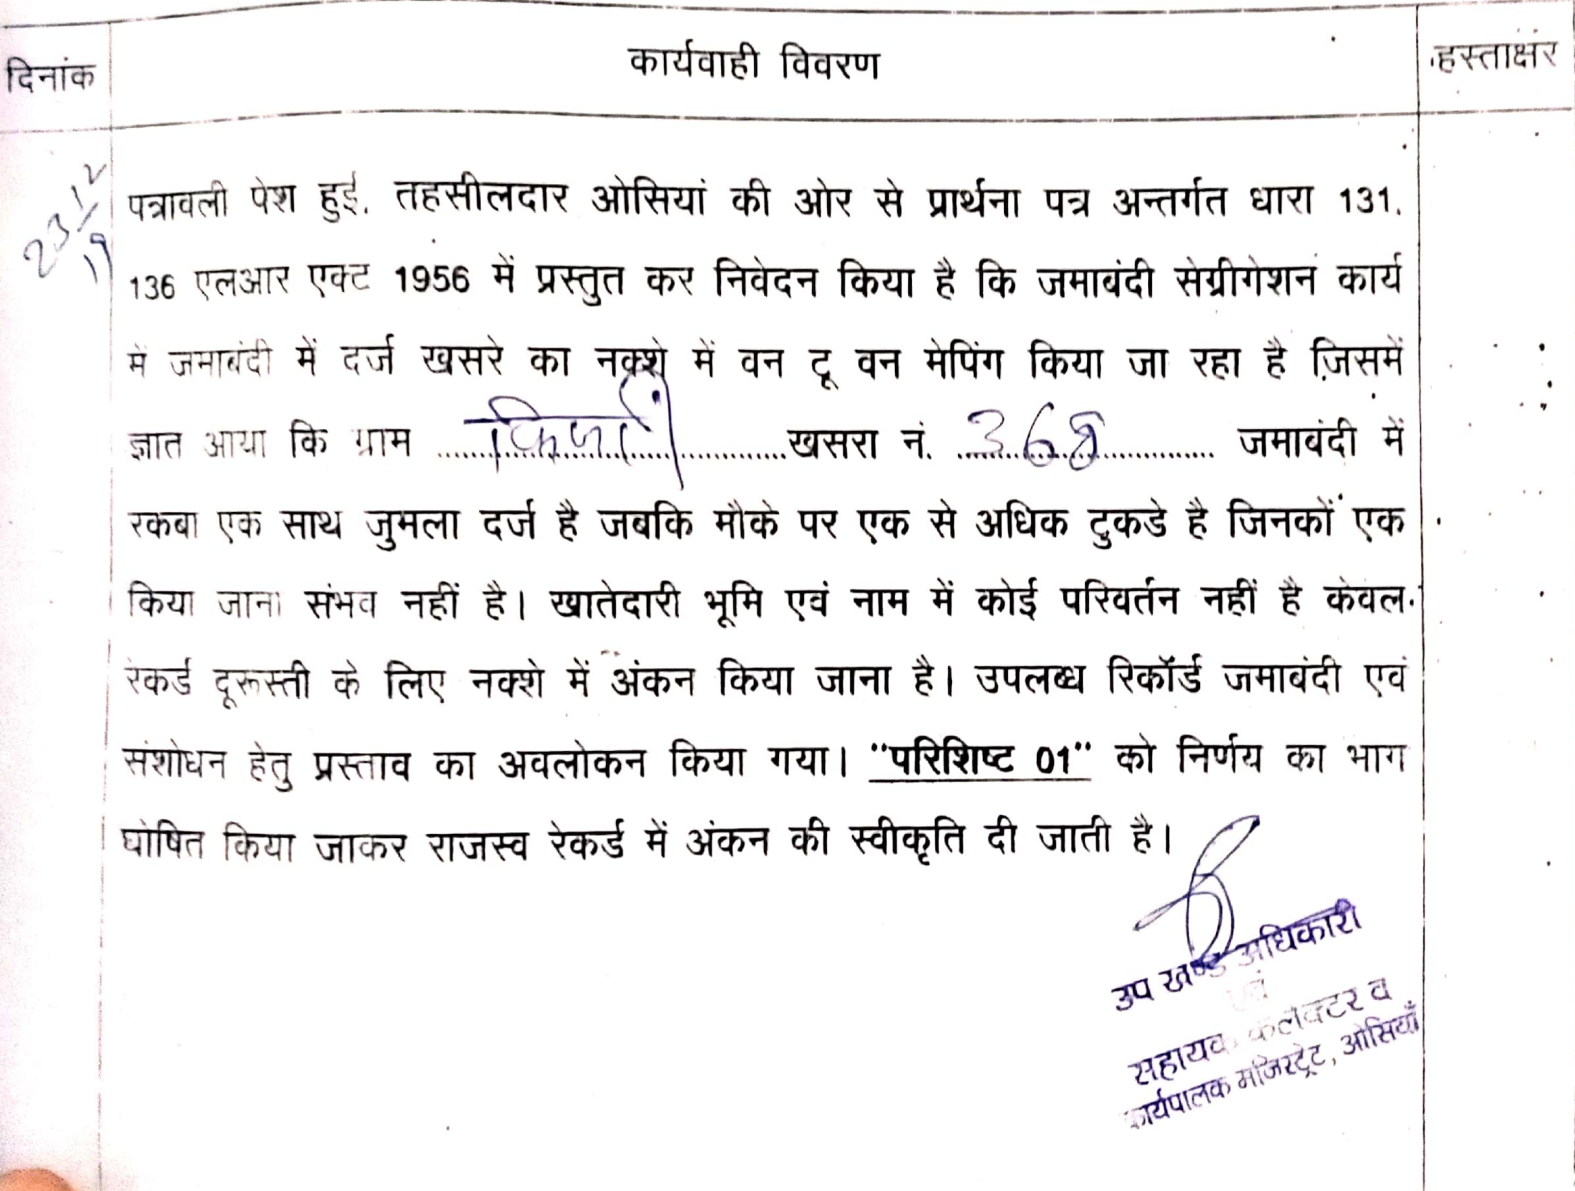 दिनांक
कार्यवाही विवरण
हस्ताक्षर
23/12/19
पत्रावली पेश हुई. तहसीलदार ओसियां की ओर से प्रार्थना पत्र अन्तर्गत धारा 131.
136 एलआर एक्ट 1956 में प्रस्तुत कर निवेदन किया है कि जमाबंदी सेग्रीगेशन कार्य
में जमाबंदी में दर्ज खसरे का नक्शे में वन टू वन मेपिंग किया जा रहा है जिसमें
ज्ञात आया कि ग्राम ........ खसरा नं. 368 जमाबंदी में
रकबा एक साथ जुमला दर्ज है जबकि मौके पर एक से अधिक टुकडे है जिनकों एक
किया जाना संभव नहीं है। खातेदारी भूमि एवं नाम में कोई परिवर्तन नहीं है केवल
रेकर्ड दूरूस्ती के लिए नक्शे में अंकन किया जाना है। उपलब्ध रिकॉर्ड जमाबंदी एवं
संशोधन हेतु प्रस्ताव का अवलोकन किया गया। "परिशिष्ट 01" को निर्णय का भाग
घोषित किया जाकर राजस्व रेकर्ड में अंकन की स्वीकृति दी जाती है।
उप खण्ड अधिकारी
एवं
सहायक कलेक्टर व
कार्यपालक मजिस्ट्रेट, ओसियाँ